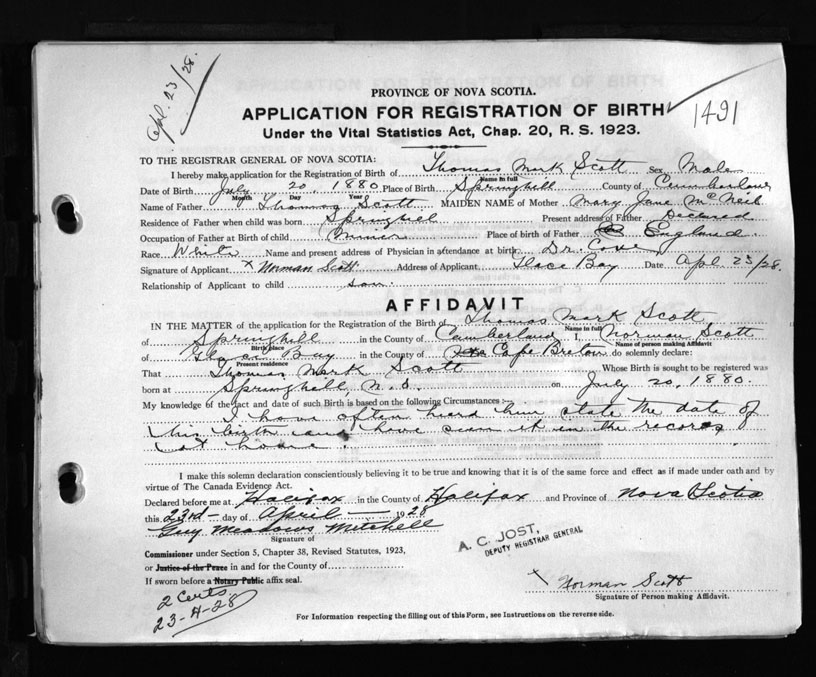 Apl. 23/28.
PROVINCE OF NOVA SCOTIA.
APPLICATION FOR REGISTRATION OF BIRTH 1491
Under the Vital Statistics Act, Chap. 20, R. S. 1923.
TO THE REGISTRAR GENERAL OF NOVA SCOTIA:
I hereby make application for the Registration of Birth of Thomas Mark Scott Sex Male
Name in full
Date of Birth July 20, 1880 Place of Birth Springhill County of Cumberland
Month Day Year
Name of Father Thomas Scott MAIDEN NAME of Mother Mary Jane McNeil
Residence of Father when child was born Springhill Present address of Father Deceased
Occupation of Father at Birth of child Miner Place of birth of Father England
Race White Name and present address of Physician in attendance at birth Dr. Cove
Signature of Applicant x Norman Scott Address of Applicant Glace Bay Date Apl 23/28.
Relationship of Applicant to child son
AFFIDAVIT
IN THE MATTER of the application for the Registration of the Birth of Thomas Mark Scott
Name in full
of Springhill in the County of Cumberland I, Norman Scott
Birth place Name of person making Affidavit
of Glace Bay in the County of Cape Breton do solemnly declare:
Present residence
That Thomas Mark Scott Whose Birth is sought to be registered was
born at Springhill, N. S. on July 20, 1880.
My knowledge of the fact and date of such Birth is based on the following Circumstances:-
I have often heard him state the date of
his birth and have seen it in the records
at home.
I make this solemn declaration conscientiously believing it to be true and knowing that it is of the same force and effect as if made under oath and by
virtue of The Canada Evidence Act.
Declared before me at Halifax in the County of Halifax and Province of Nova Scotia
this 23rd day of April 1928
Guy Meadows Mitchell
Signature of
A. C. JOST,
DEPUTY REGISTRAR GENERAL
Commissioner under Section 5, Chapter 38, Revised Statutes, 1923,
or Justice of the Peace in and for the County of
If sworn before a Notary Public affix seal.
x Norman Scott
Signature of Person making Affidavit.
2 Certs
23-4-28
For Information respecting the filling out of this Form, see Instructions on the reverse side.